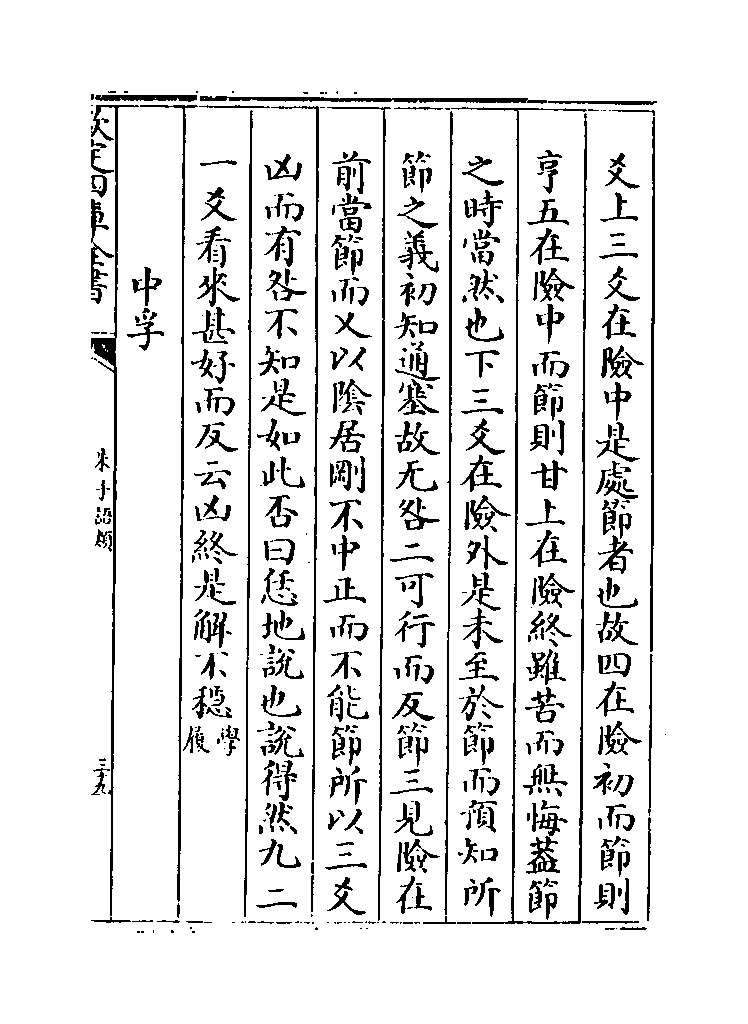 爻上三爻在險中是處節者也故四在險初而節則
亨五在險中而節則甘上在險終雖苦而無悔蓋節
之時當然也下三爻在險外是未至於節而預知所
節之義初知通塞故无咎二可行而反節三見險在
前當節而又以陰居剛不中正而不能節所以三爻
凶而有咎不知是如此否曰恁地說也說得然九二
一爻看來甚好而反云凶終是解不穩學履
中孚
欽定四庫全書
朱子語類
三十九